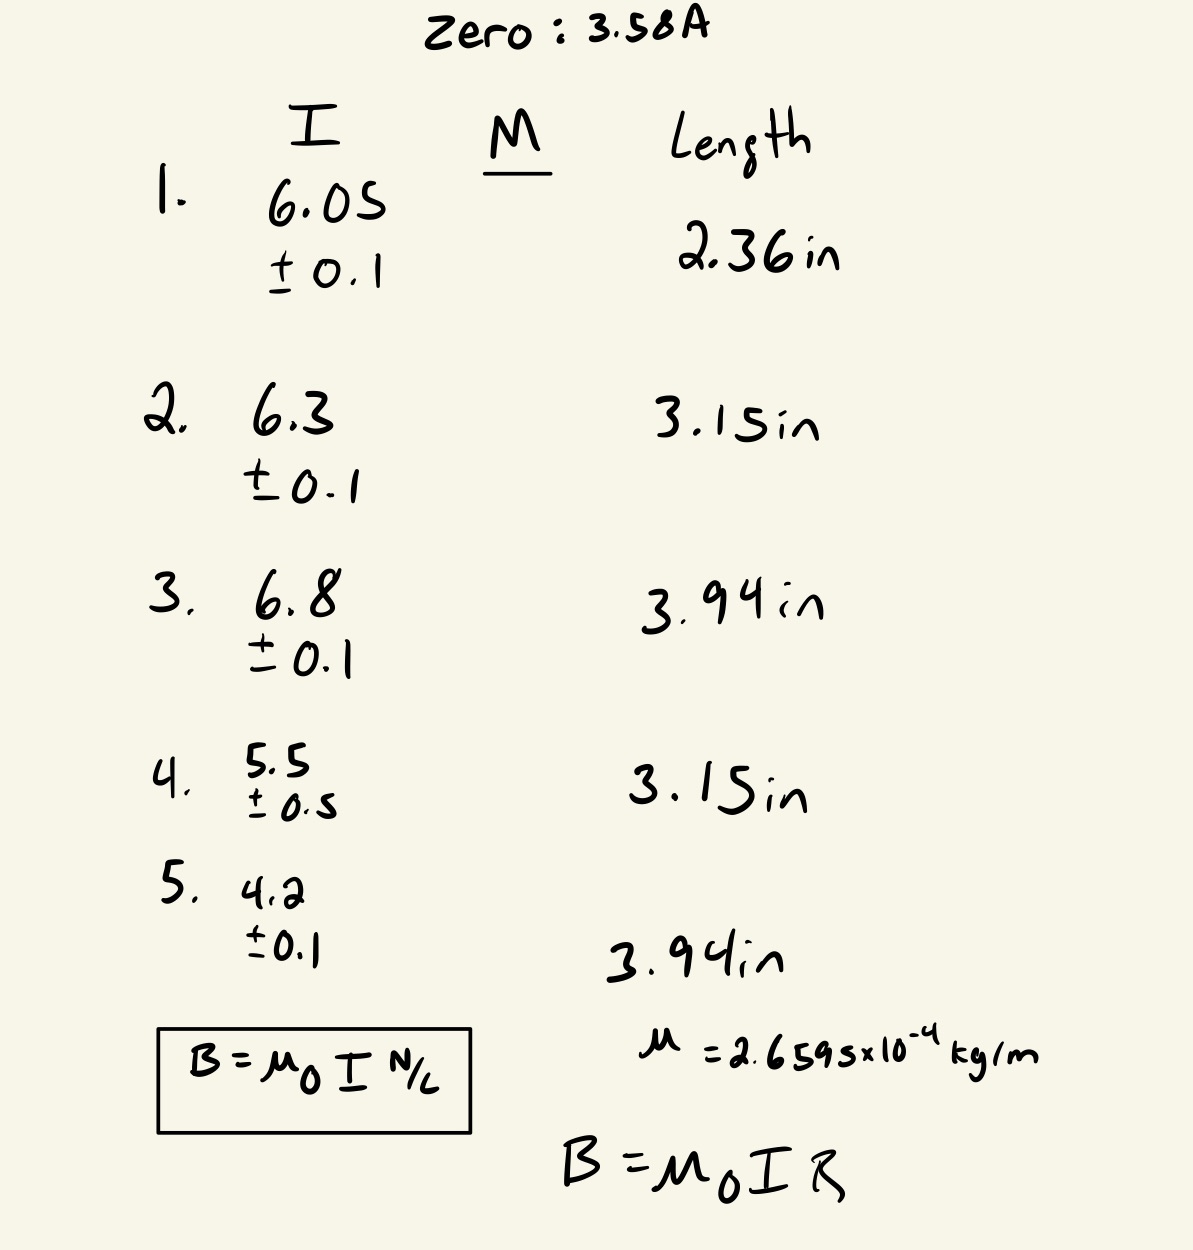 Zero : 3.58A
I M Length
1. 6.05
± 0.1
2.36 in
2. 6.3 3.15 in
± 0.1
3. 6.8 3.94 in
± 0.1
4. 5.5 3.15 in
± 0.5
5. 4.2
± 0.1
3.94 in
μ = 2.6595x10⁻⁴ kg/m
B = μ₀ I N/L
B = μ₀ I R